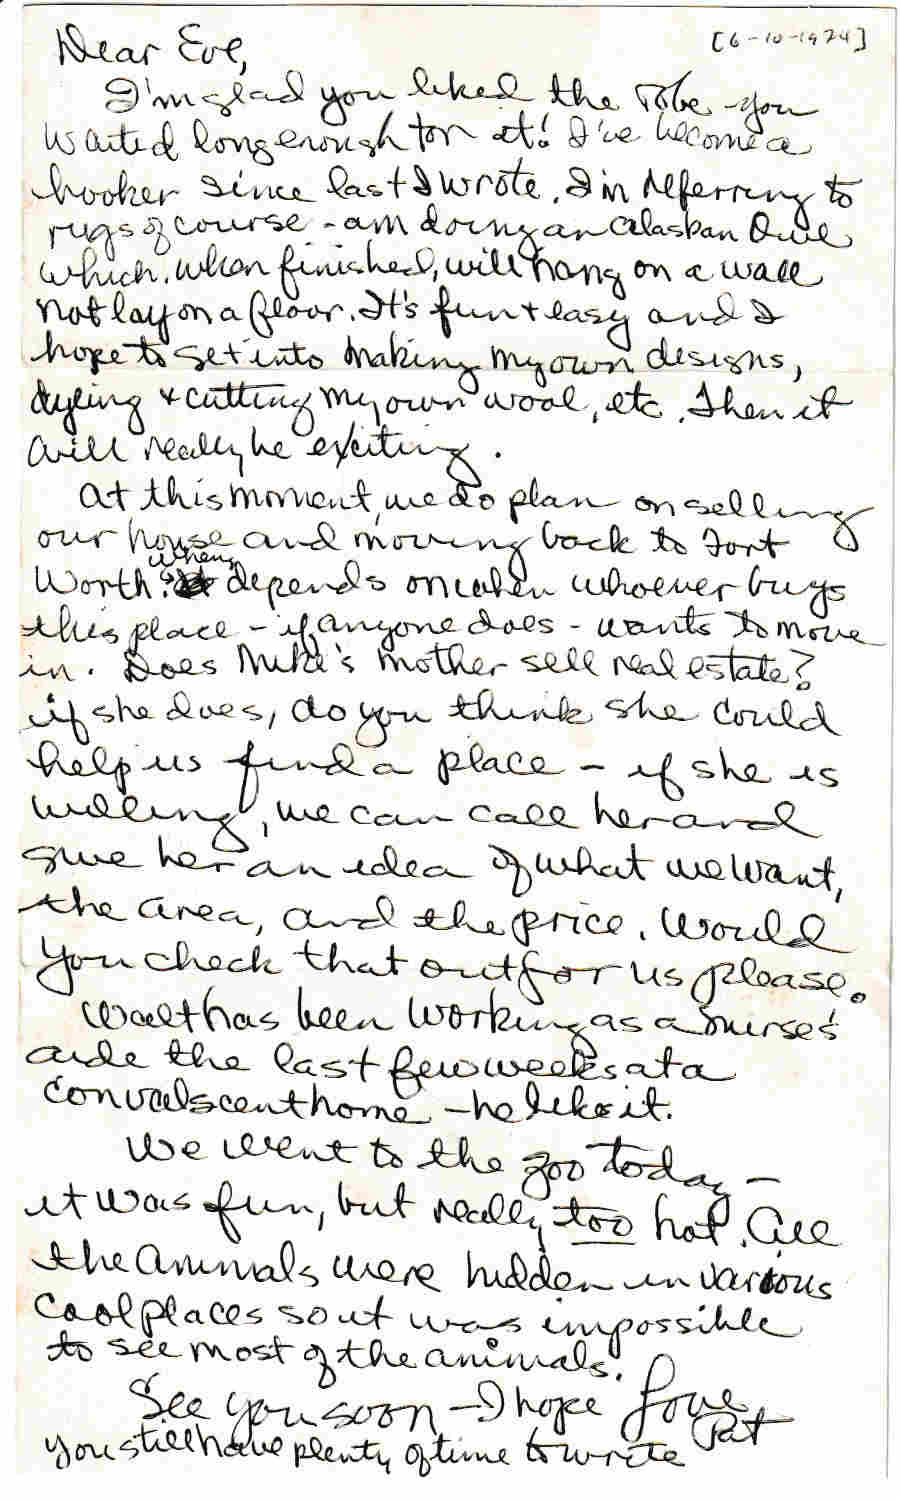 [6-10-1974]
Dear Eve,
I'm glad you liked the robe - you
waited long enough for it! I've become a
hooker since last I wrote. I'm referring to
rugs of course - am doing an Alaskan Owl
which, when finished, will hang on a wall
not lay on a floor. It's fun + easy and I
hope to get into making my own designs,
dyeing + cutting my own wool, etc. Then it
will really be exciting.
At this moment, we do plan on selling
our house and moving back to Fort
Worth. When depends on when whoever buys
this place - if anyone does - wants to move
in. Does Mike's mother sell real estate?
if she does, do you think she could
help us find a place - if she is
willing, we can call her and
give her an idea of what we want,
the area, and the price. Would
you check that out for us please.
Walt has been working as a nurse's
aide the last few weeks at a
convalscent home - he likes it.
We went to the zoo today -
it was fun, but really too hot. All
the animals were hidden in various
cool places so it was impossible
to see most of the animals.
See you soon - I hope Love
Pat
you still have plenty of time to write